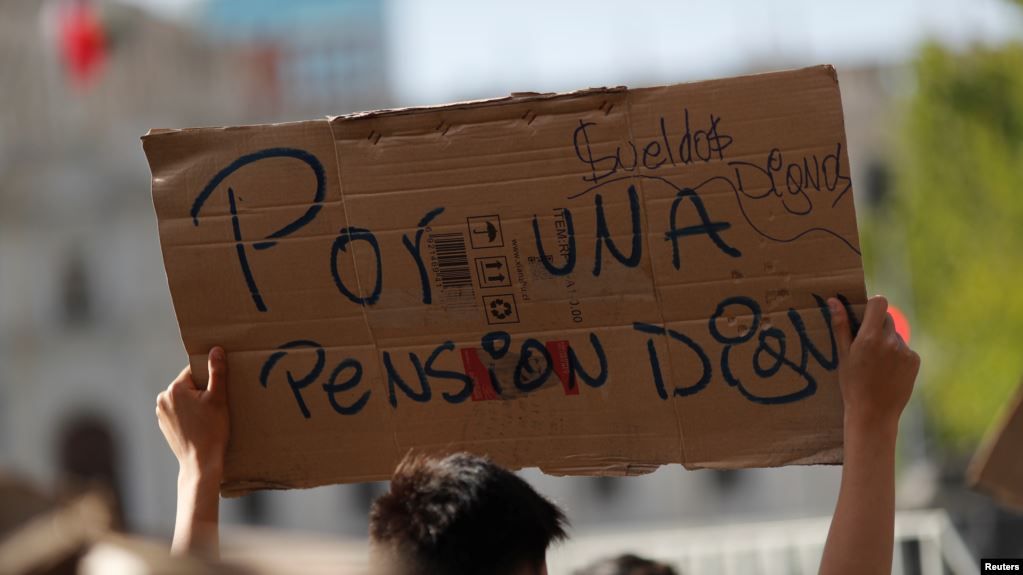 $ueldo$
DigNoS
Por UNA
PeNsioN DigN
Reuters